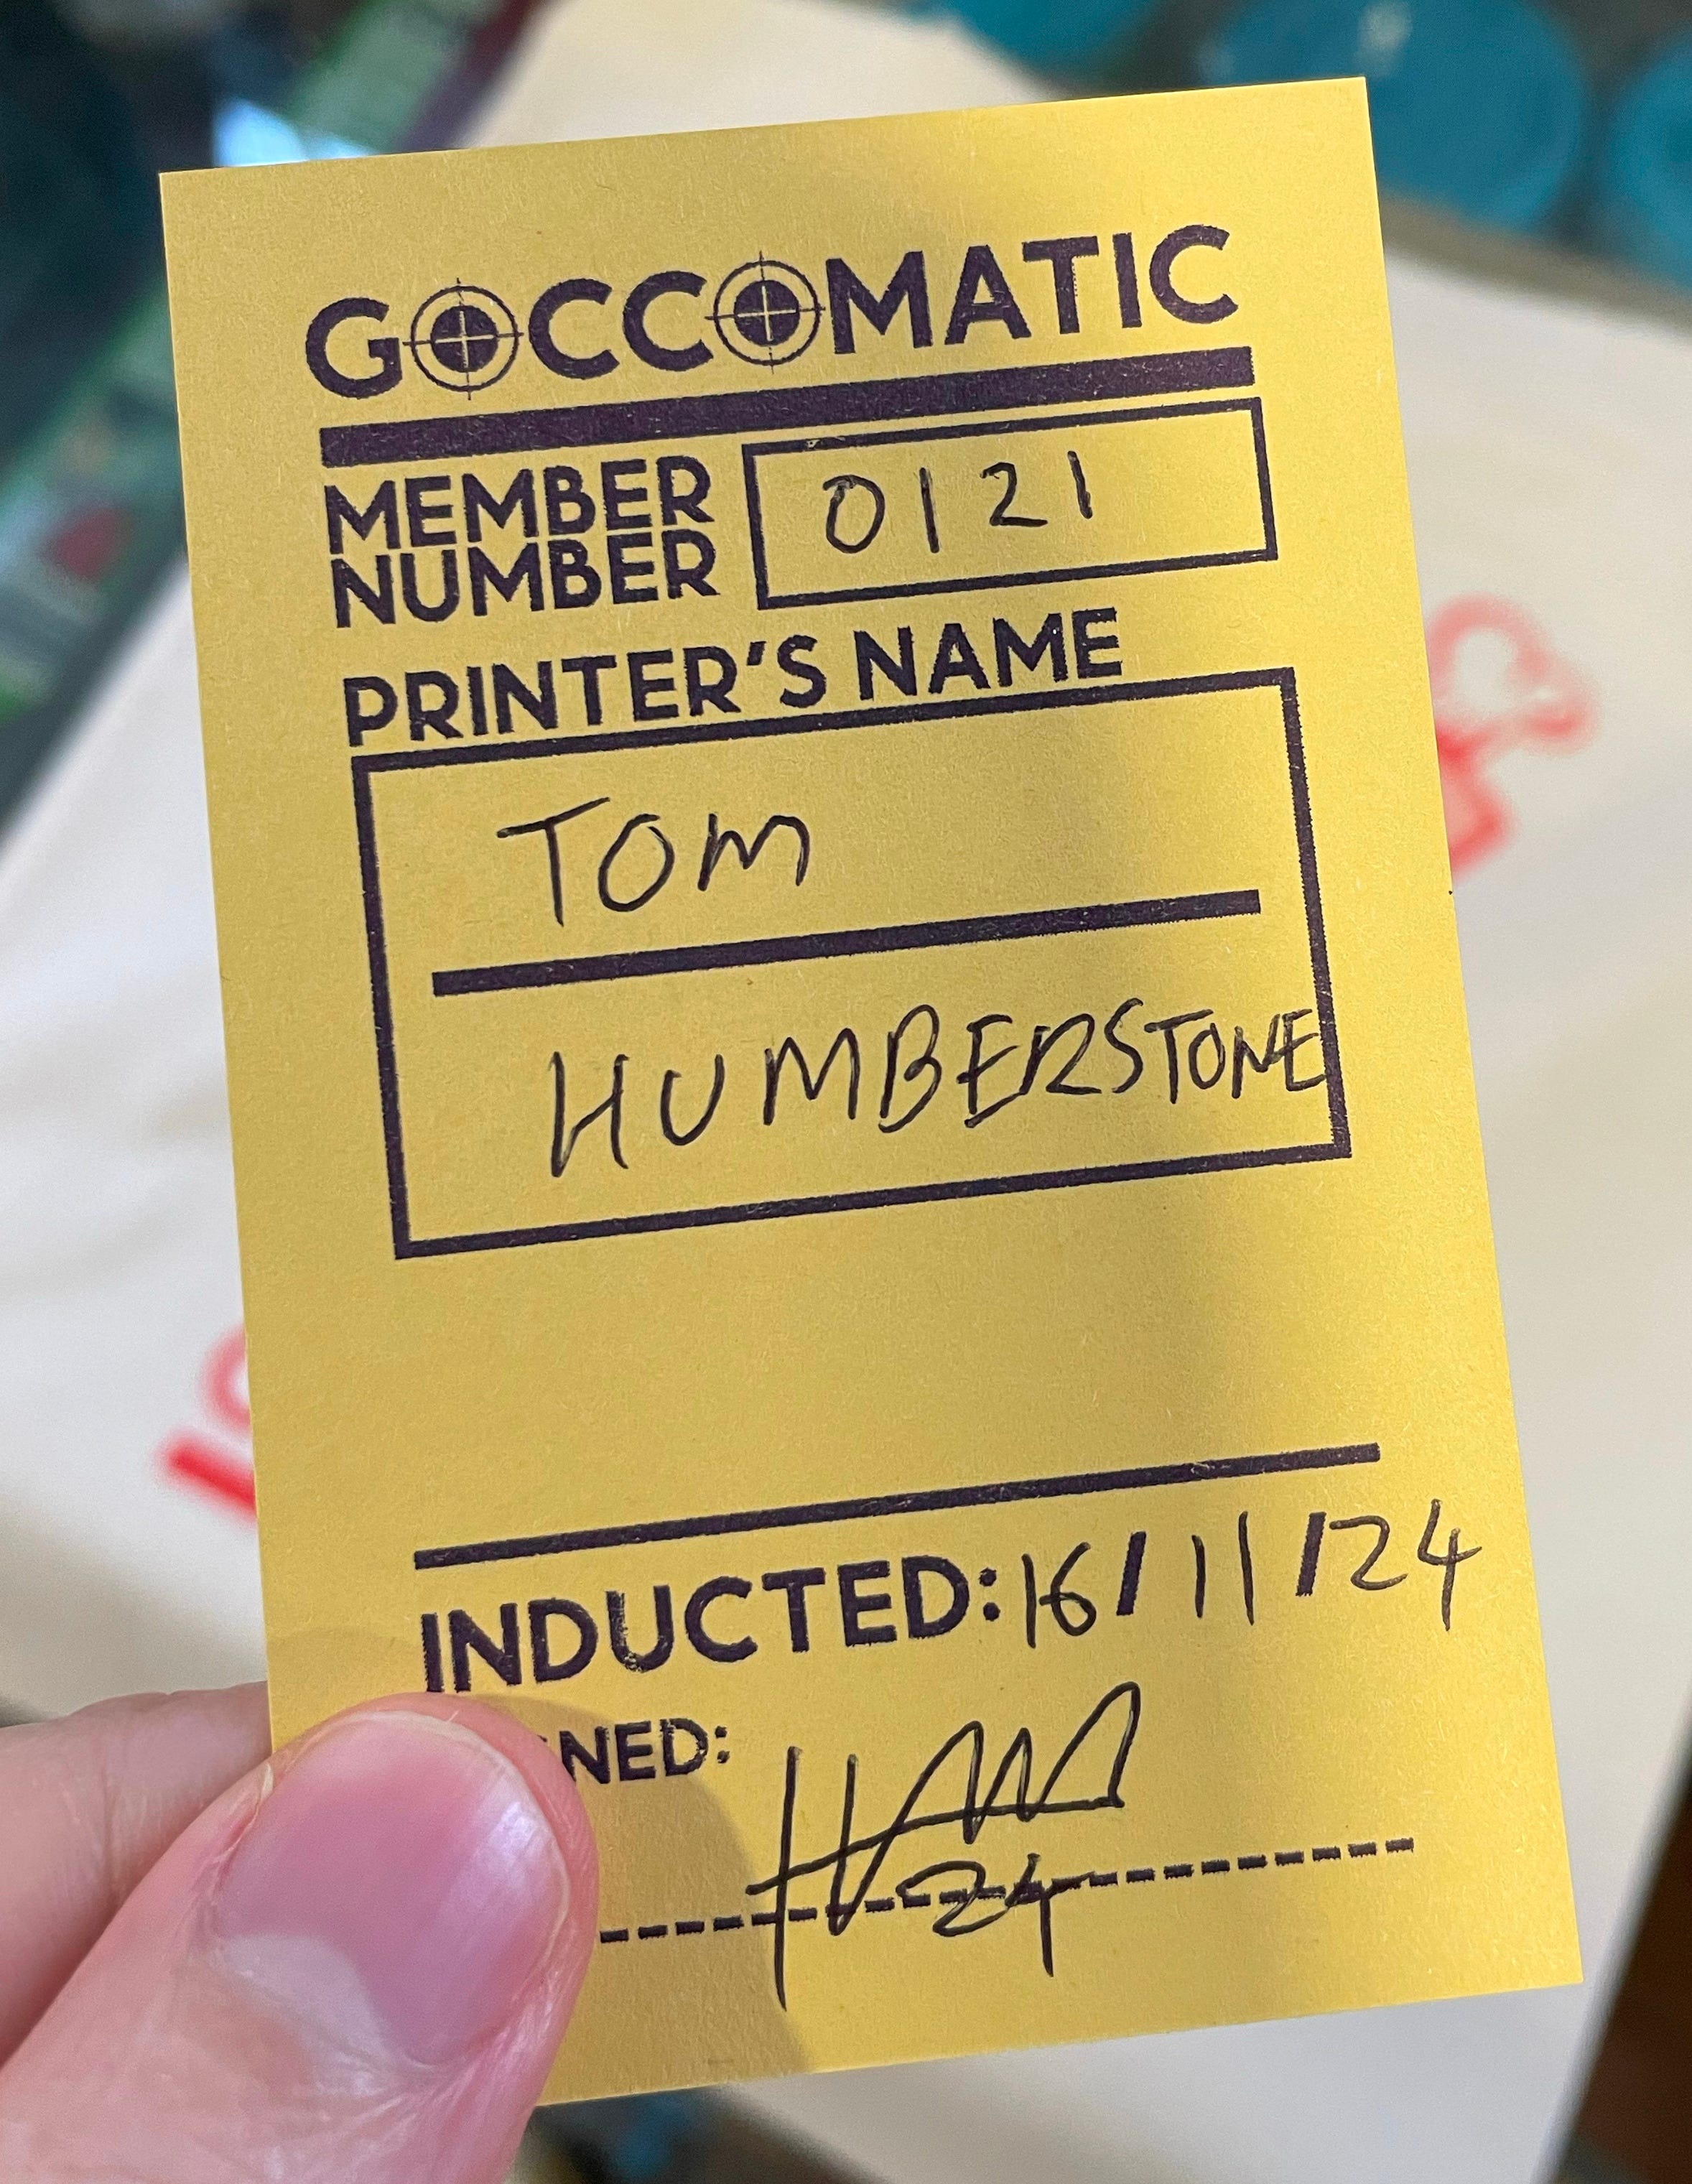 GOCCOMATIC
MEMBER
NUMBER
0121
PRINTER'S NAME
TOM
HUMBERSTONE
INDUCTED: 16/11/24
NED:
24